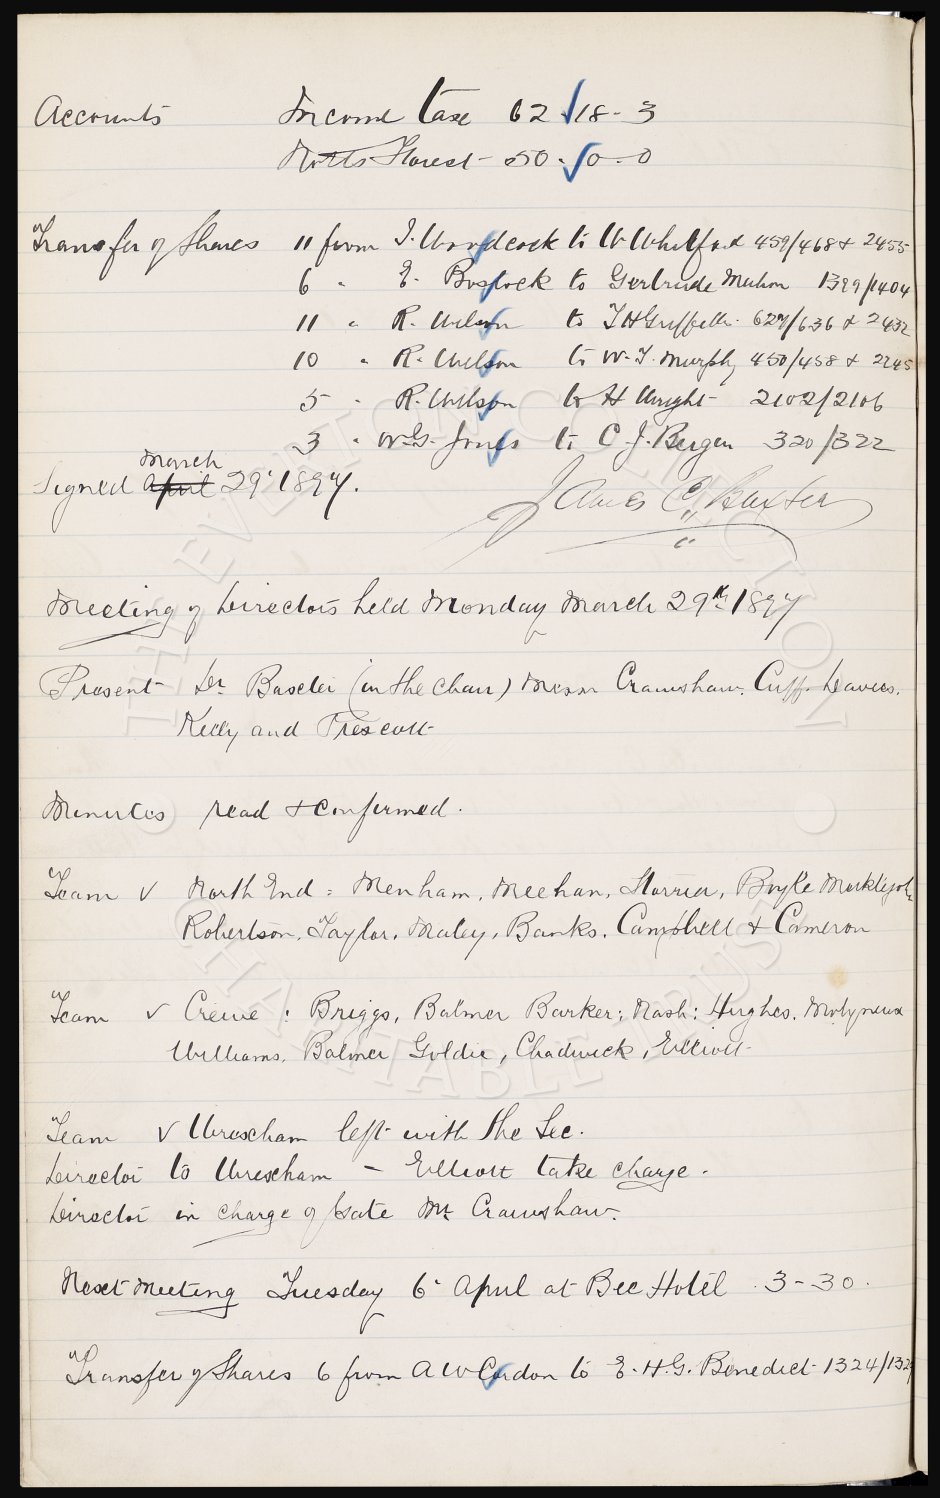 Accounts Income Tax 62 18-3
Notts Forest - 50-0-0
Transfer of Shares 11 from J. Woodcock to W. Whitford 459/468 & 2455
6 " E. Bostock to Gertrude Mahon 1399/1404
11 " R. Wilson to T H Griffith 627/636 & 2432
10 " R. Wilson to W. J. Murphy 450/458 & 2245
5 " R. Wilson to H Wright 2102/2106
3 " W G. Jones to C. J. Bergen 320/322
March
Signed April 29 1897. James C. Baxter
Meeting of Directors held Monday March 29th 1897
Present Dr. Baxter (in the chair) Messrs Crawshaw. Cuff. Davies.
Kelly and Prescott
Minutes read & confirmed.
Team v North End = Menham, Meehan, Storrier, Boyle Meiklejohn
Robertson, Taylor, Maley, Banks, Campbell & Cameron
Team v Crewe : Briggs, Balmer Barker; Nash: Hughes. Molyneux
Williams, Balmer Goldie, Chadwick, Elliott
Team v Wrexham left with the Sec.
Director to Wrexham - Elliott take charge.
Director in charge of Gate Mr. Crawshaw.
Next Meeting Tuesday 6 April at Bee Hotel 3-30.
Transfer of Shares 6 from A W Cardon to E. H. G. Benedict 1324/132
THE EVERTON COLLECTION
CHARITABLE TRUST